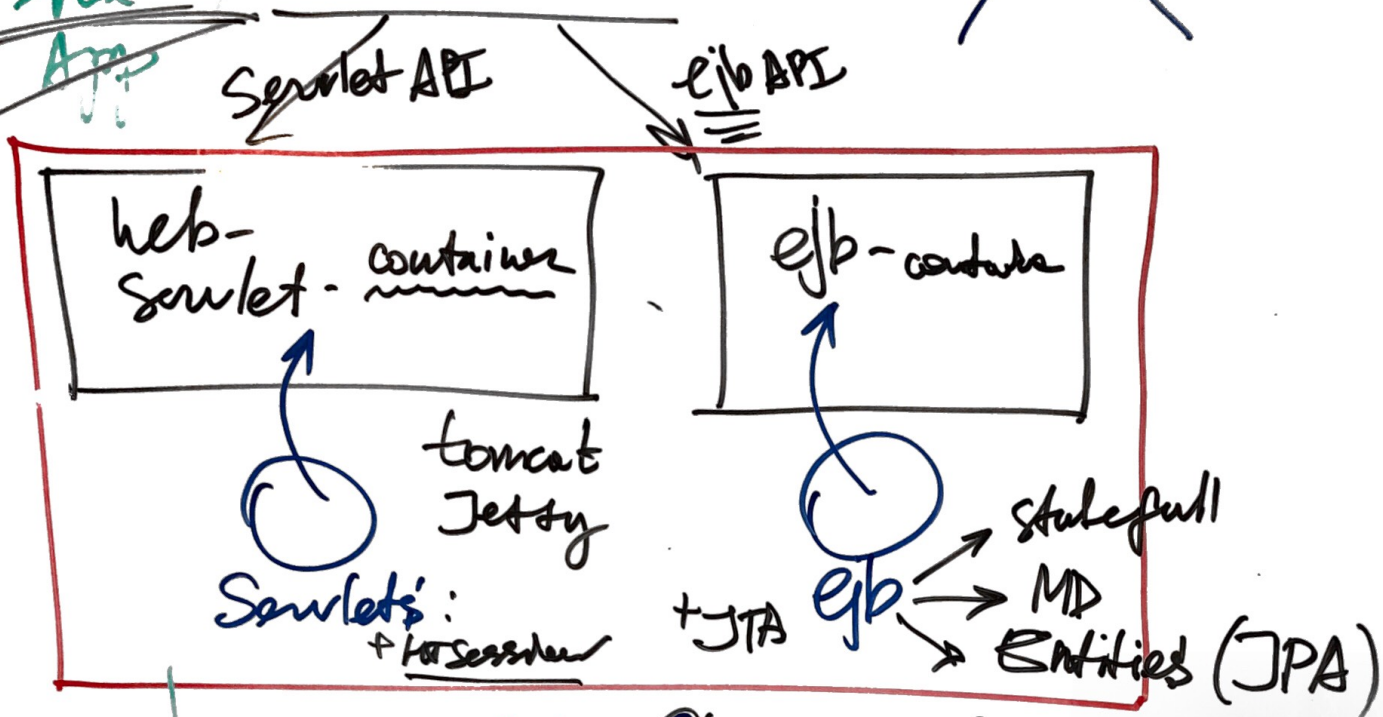 App
Servlet API
ejb API
web-
servlet - container
ejb - container
tomcat
Jetty
Servlets :
+ HttpSession
+JTA
ejb
statefull
MD
Entities (JPA)